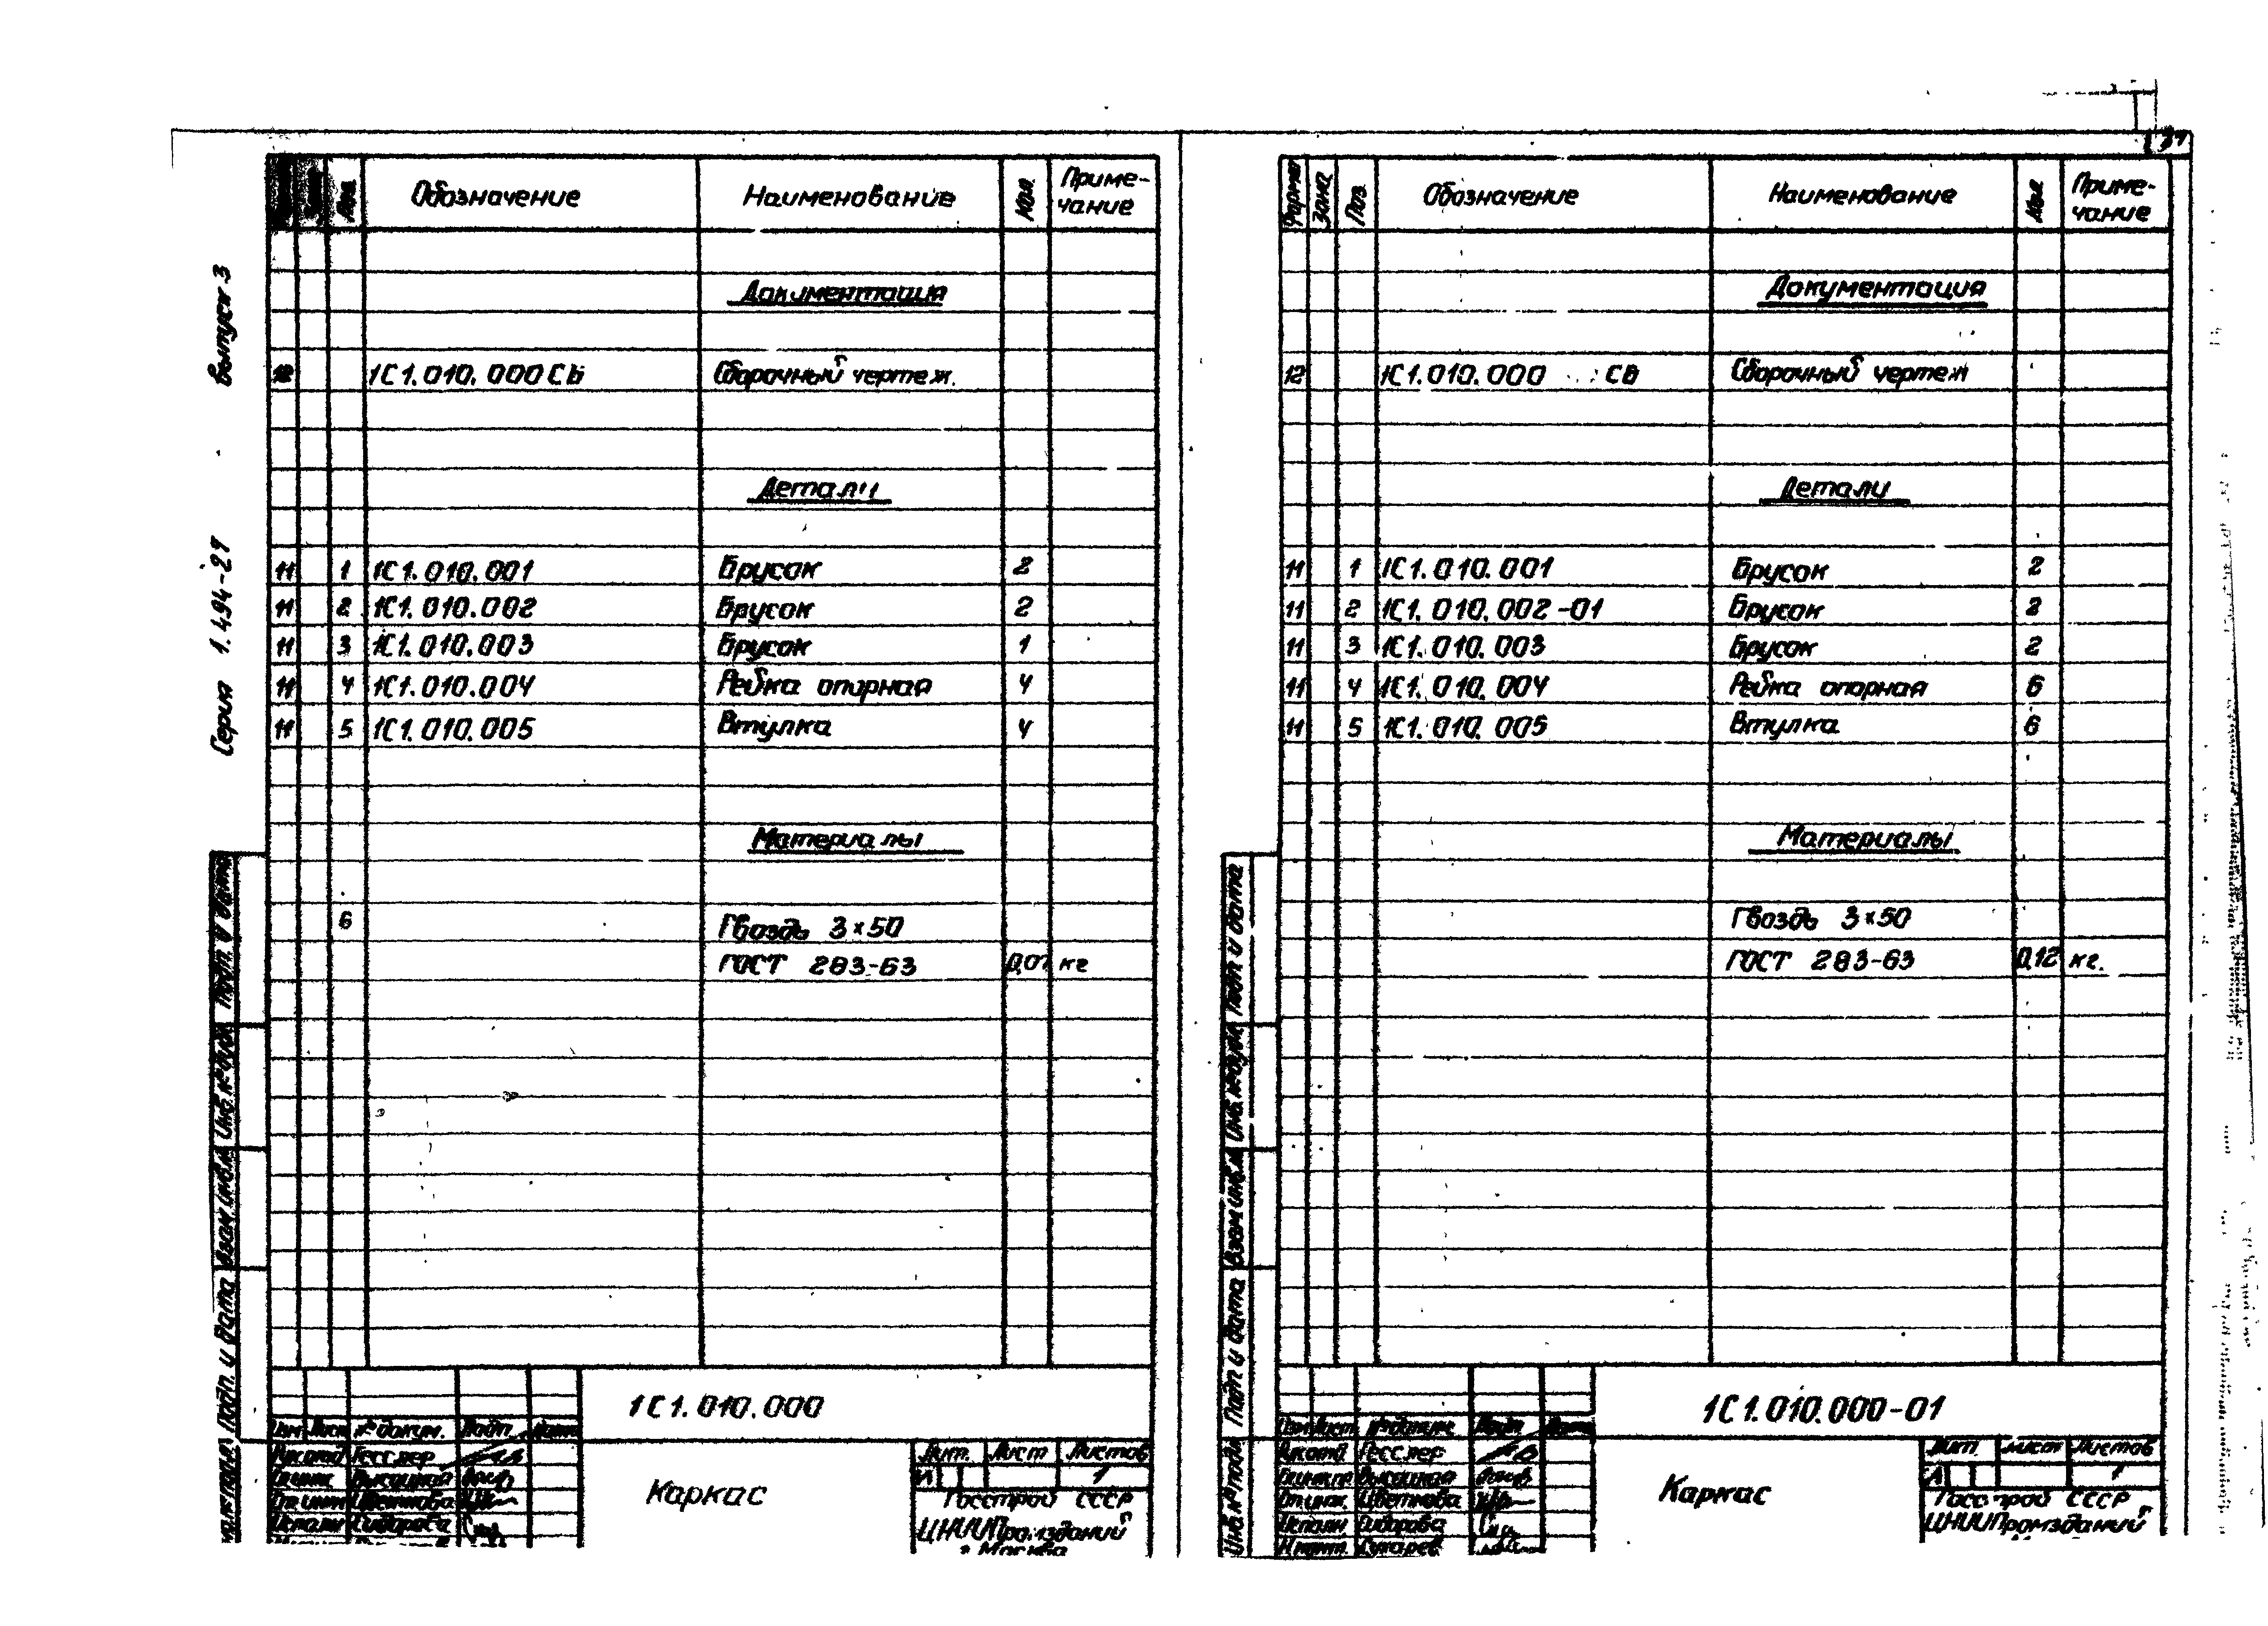 Серия 1.494-27 выпуск 3
Поз. Обозначение Наименование Кол. Приме-
чание
Документация
12 1С1.010.000СБ Сборочный чертеж.
Детали
11 1 1С1.010.001 Брусок 2
11 2 1С1.010.002 Брусок 2
11 3 1С1.010.003 Брусок 1
11 4 1С1.010.004 Рейка опорная 4
11 5 1С1.010.005 Втулка 4
Материалы
6 Гвоздь 3×50
ГОСТ 283-63 0,07 кг
Подп. и дата
Инв.№дубл.
Взам.инв.№
Подп. и дата
1С1.010.000
Изм Лист №докум. Подп. Дата
Каркас
Лит. Лист Листов
И 1
Госстрой СССР
ЦНИИПромзданий
г. Москва
Форма Зона Поз. Обозначение Наименование Кол. Приме-
чание
Документация
12 1С1.010.000 СБ Сборочный чертеж
Детали
11 1 1С1.010.001 Брусок 2
11 2 1С1.010.002-01 Брусок 2
11 3 1С1.010.003 Брусок 2
11 4 1С1.010.004 Рейка опорная 6
11 5 1С1.010.005 Втулка 6
Материалы
Гвоздь 3×50
ГОСТ 283-63 0,12 кг.
Подп и дата
Инв.№дубл.
Взам инв.№
Подп и дата
Инв.№подл.
1С1.010.000-01
Изм Лист №докум. Подп Дата
Каркас
Лит. Лист Листов
1
Цветкова
Исполн Сидорова
Госстрой СССР
ЦНИИПромзданий